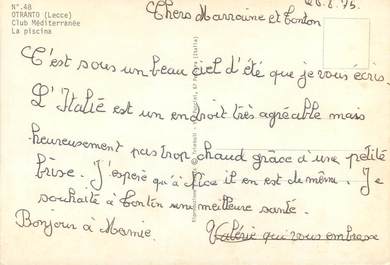 N°.48
OTRANTO (Lecce)
Club Méditerranée
La piscina
20.8.75.
Chers Marraine et Tonton
C'est sous un beau ciel d'été que je vous écris.
L'Italie est un endroit très agréable mais
heureusement pas trop chaud grâce à une petite
brise. J'espère qu'à Nice il en est de même. Je
souhaite à Tonton une meilleure santé.
Bonjour à Mamie.
Valérie qui vous embrasse